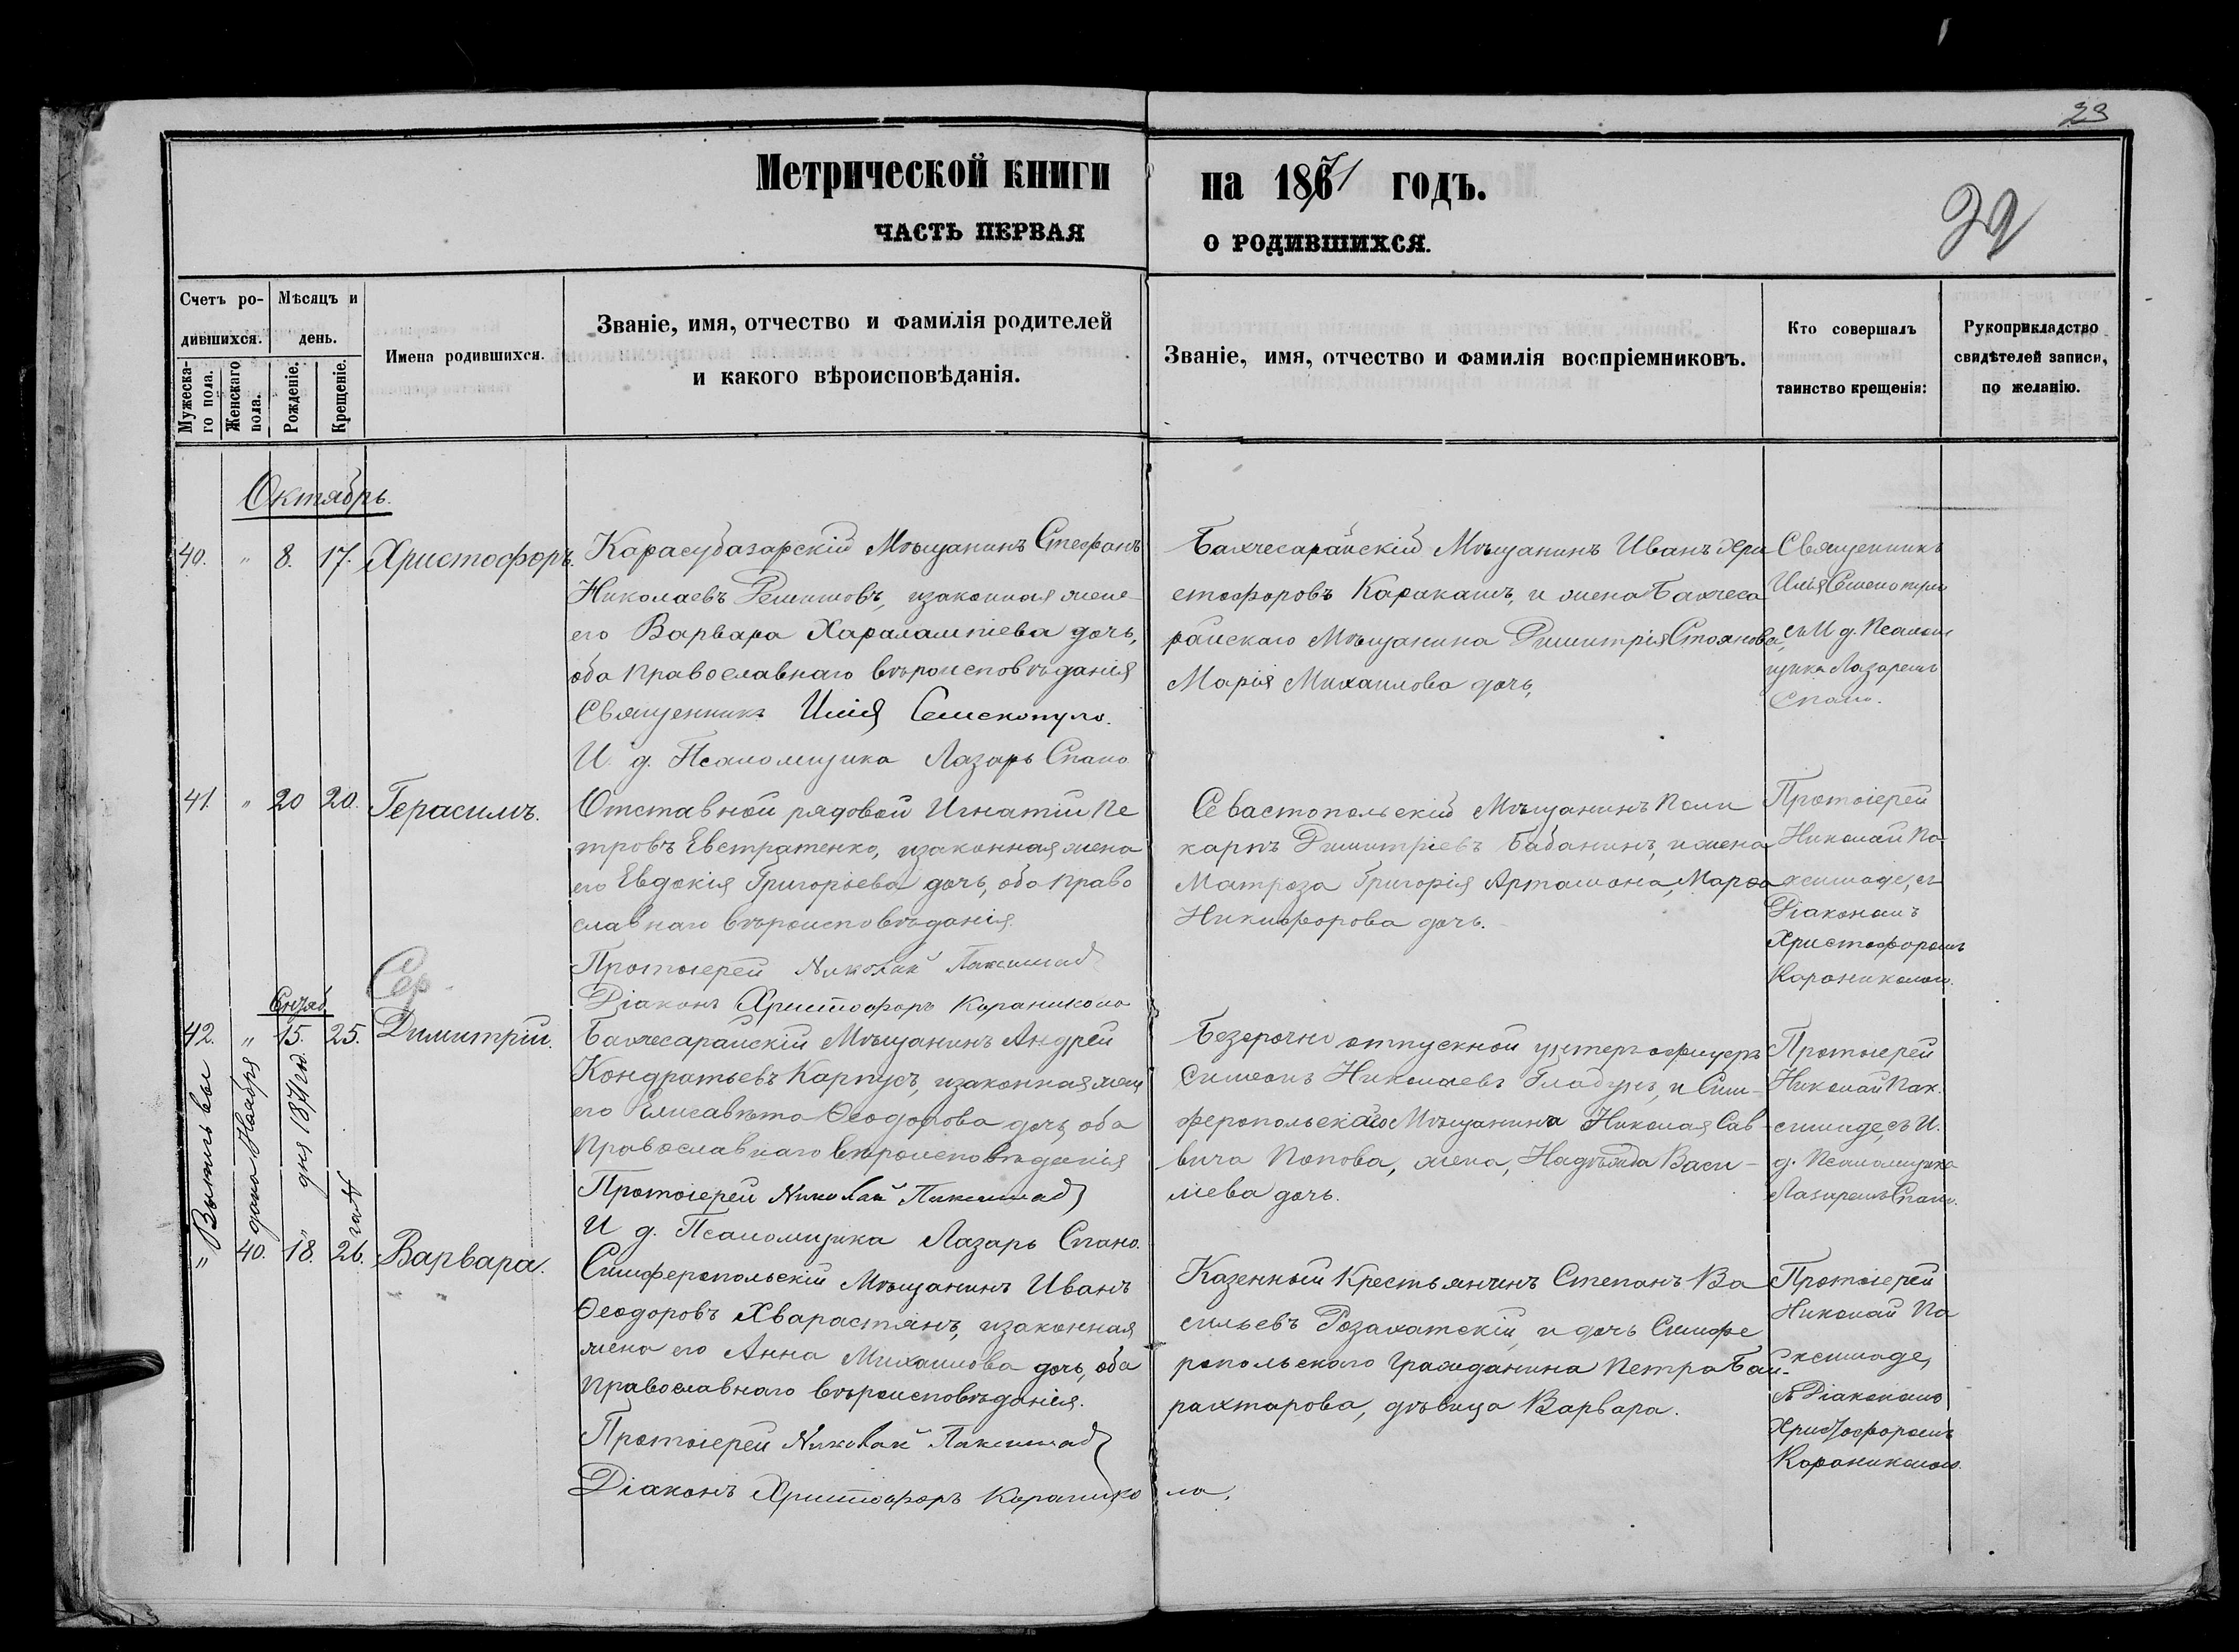 23
Метрической книги на 1871 годъ.
32
ЧАСТЬ ПЕРВАЯ О РОДИВШИХСЯ.
Счетъ ро-
дившихся.
Мужеска-
го пола.
Женскаго
пола.
Мѣсяцъ и
день.
Рожденіе.
Крещеніе.
Имена родившихся.
Званіе, имя, отчество и фамилія родителей
и какого вѣроисповѣданія.
Званіе, имя, отчество и фамилія воспріемниковъ.
Кто совершалъ
таинство крещенія:
Рукоприкладство
свидѣтелей записи,
по желанію.
Октябрь.
40. " 8. 17. Христофоръ.
Карасубазарскій Мѣщанинъ Стефанъ
Николаевъ изаконная жена
его Варвара Харалампіева дочь,
оба Православнаго вѣроисповѣданія
Священникъ Илія
И. д. Псаломщика Лазарь Спано
Бахчесарайскій Мѣщанинъ Иванъ Хри
стофоровъ Каракашъ, и жена Бахчеса
райскаго Мѣщанина Димитрія Стоянова,
Марія Михаилова дочь,
Священникъ
Илія
съ И д. Псалом
щика Лазаремъ
Спано.
41. " 20 20. Герасимъ.
Отставной рядовой Игнатій Пе
тровъ Евстратенко, изаконная жена
его Евдокія Григорьева дочь, оба Право
славнаго вѣроисповѣданія.
Протоіерей Николай Паксимад
Діаконъ Христофоръ Караникола
Севастопольскій Мѣщанинъ Поли
карпъ Димитріевъ Бабанинъ, ижена
Матроза Григорія Артамона, Марѳа
Никифорова дочь.
Протоіерей
Николай Па-
ксимаде, съ
Діакономъ
Христофоромъ
Караниколою.
42. " 15. 25. Димитрій.
Бахчесарайскій Мѣщанинъ Андрей
Кондратьевъ Карпусъ, изаконная жена
его Елисавѣта Ѳеодорова дочь, оба
Православнаго вѣроисповѣданія
Протоіерей Николай Паксимад
И д. Псаломщика Лазарь Спано.
Безсрочно отпускной унтеръ офицеръ
Симеонъ Николаевъ Гладунъ, и Сим-
феропольскаго Мѣщанина Николая Сав-
вича Попова, жена, Надѣжда Васи-
лиева дочь.
Протоіерей
Николай Пак.
симаде, съ И.
д. Псаломщика
Лазаремъ Спано.
" 40. 18. 26. Варвара.
Симферопольскій Мѣщанинъ Иванъ
Ѳеодоровъ Хварастянъ, изаконная
жена его Анна Михаилова дочь, оба
Православнаго вѣроисповѣданія.
Протоіерей Николай Паксимад
Діаконъ Христофоръ Карани​ко ла.
Казенный Крестьянинъ Степанъ Ва
сильевъ и дочь Симфе
ропольскаго Гражданина Петра Бай-
рахтарова, дѣвица Варвара.
Протоіерей
Николай Па
ксимаде,
съ Діакономъ
Христофоромъ
Караниколою.